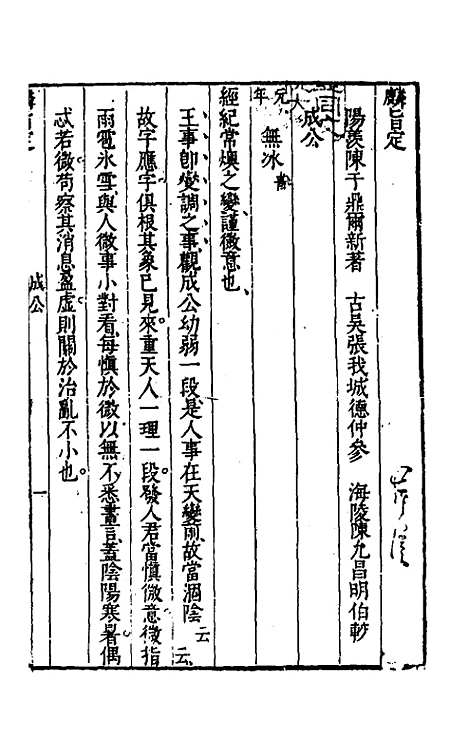 麟旨定
陽羨陳于鼎爾新著 古吳張我城德仲參 海陵陳允昌明伯較
成公
元年
無冰
經紀常燠之變謹微意也
王事即變調之事觀成公幼弱一段是人事在天變前故當涸陰云云
故字應字俱根其象已見來重天人一理一段發人君當慎微意微指
雨雹冰雪與人微事小對看每慎於微以無不悉書言蓋陰陽寒暑偶
忒若微苟察其消息盈虛則關於治亂不小也
成公
一